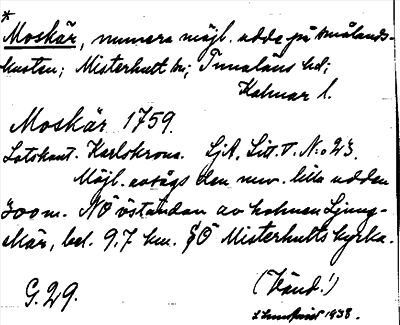 *
Moskär, numera möjl. udde på Smålands-
kusten; Misterhult sn; Tunaläns hd;
Kalmar l.
Moskär 1759.
Lotskont. Karlskrona. SjA. Lit. V. N:o 23.
Möjl. avsågs den nuv. lilla udden
300 m. NÖ östandan av holmen Ljung-
skär, bel. 9,7 km. SÖ Misterhults kyrka.
G. 29.
(Vänd!)
1938.